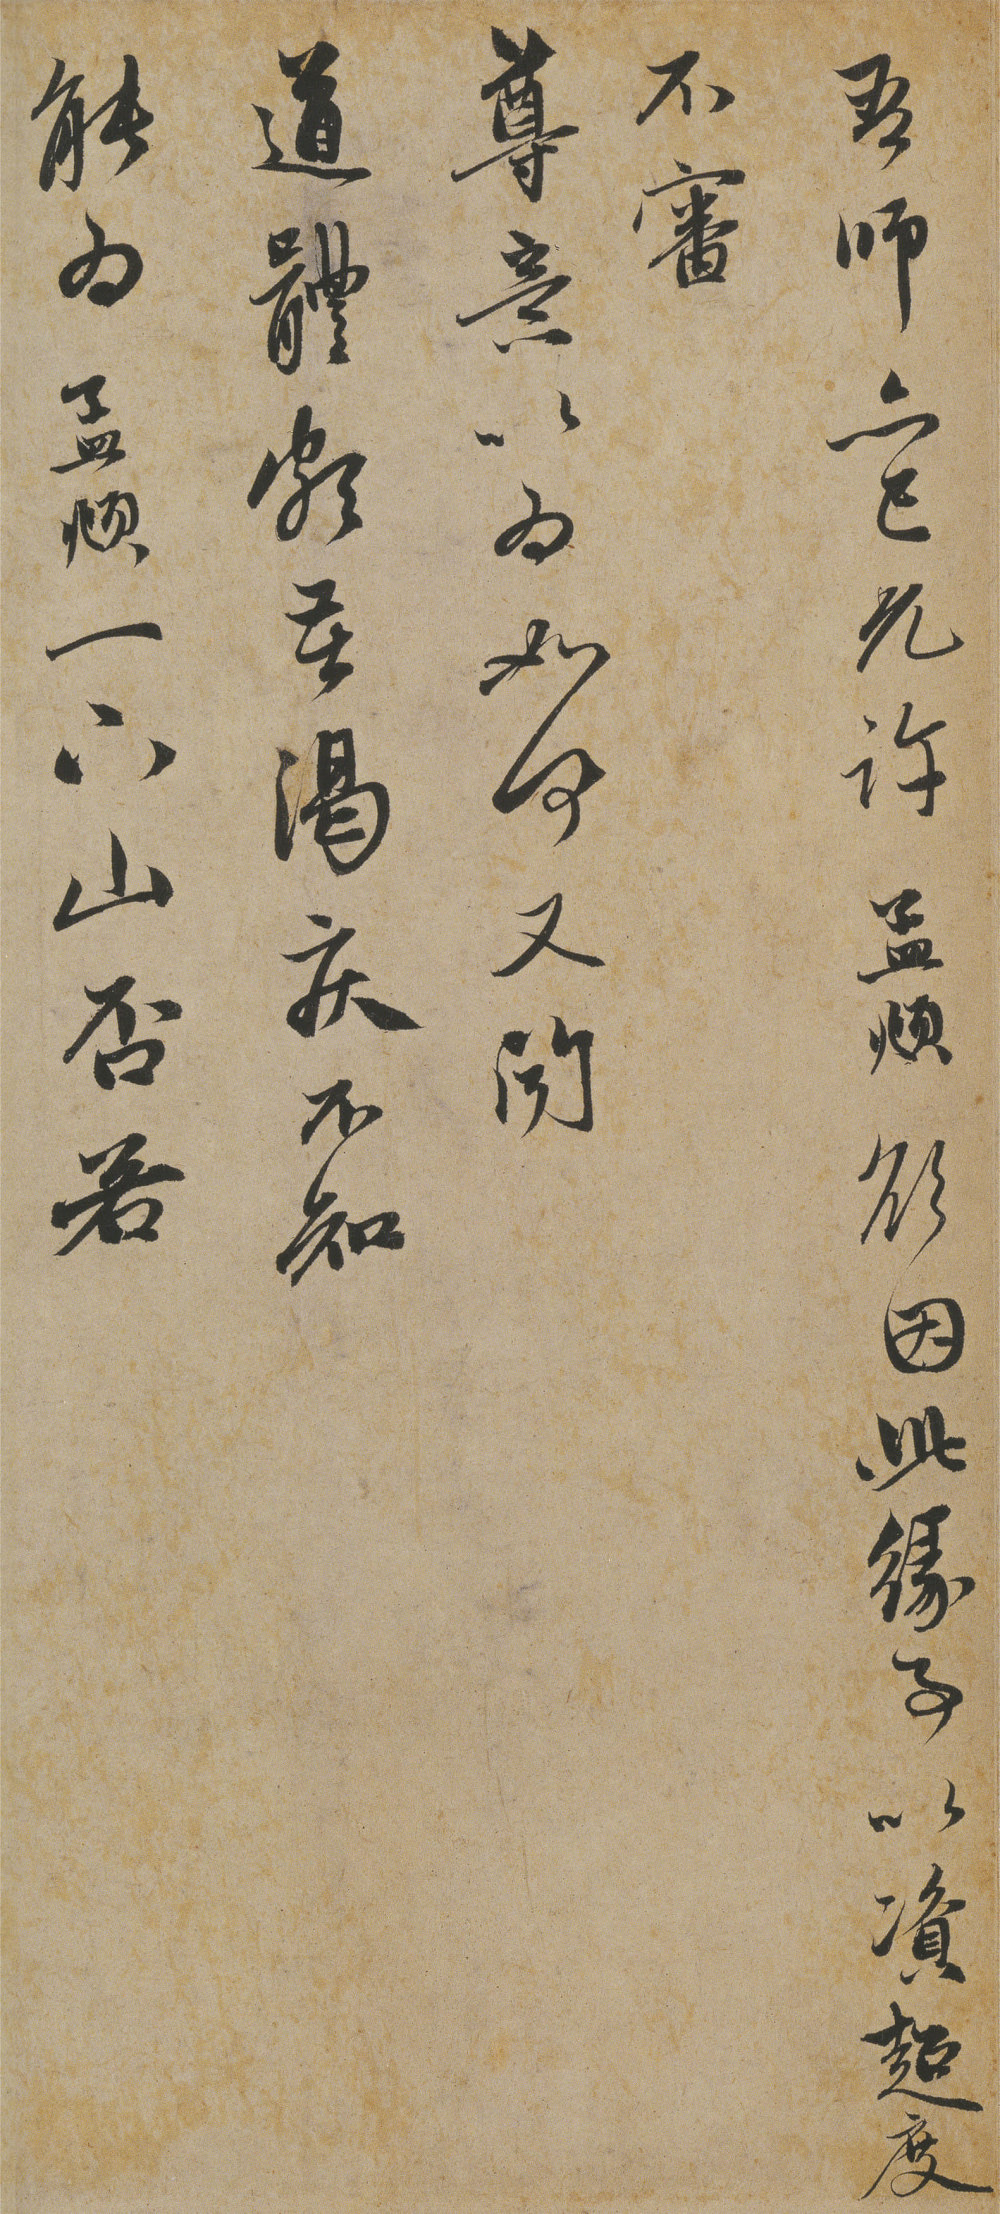 吾師亦已允許孟頫欲因此緣事以資超度
不審
尊意以為如何又聞
道體頗苦渴疾不知
能為孟頫一下山否若